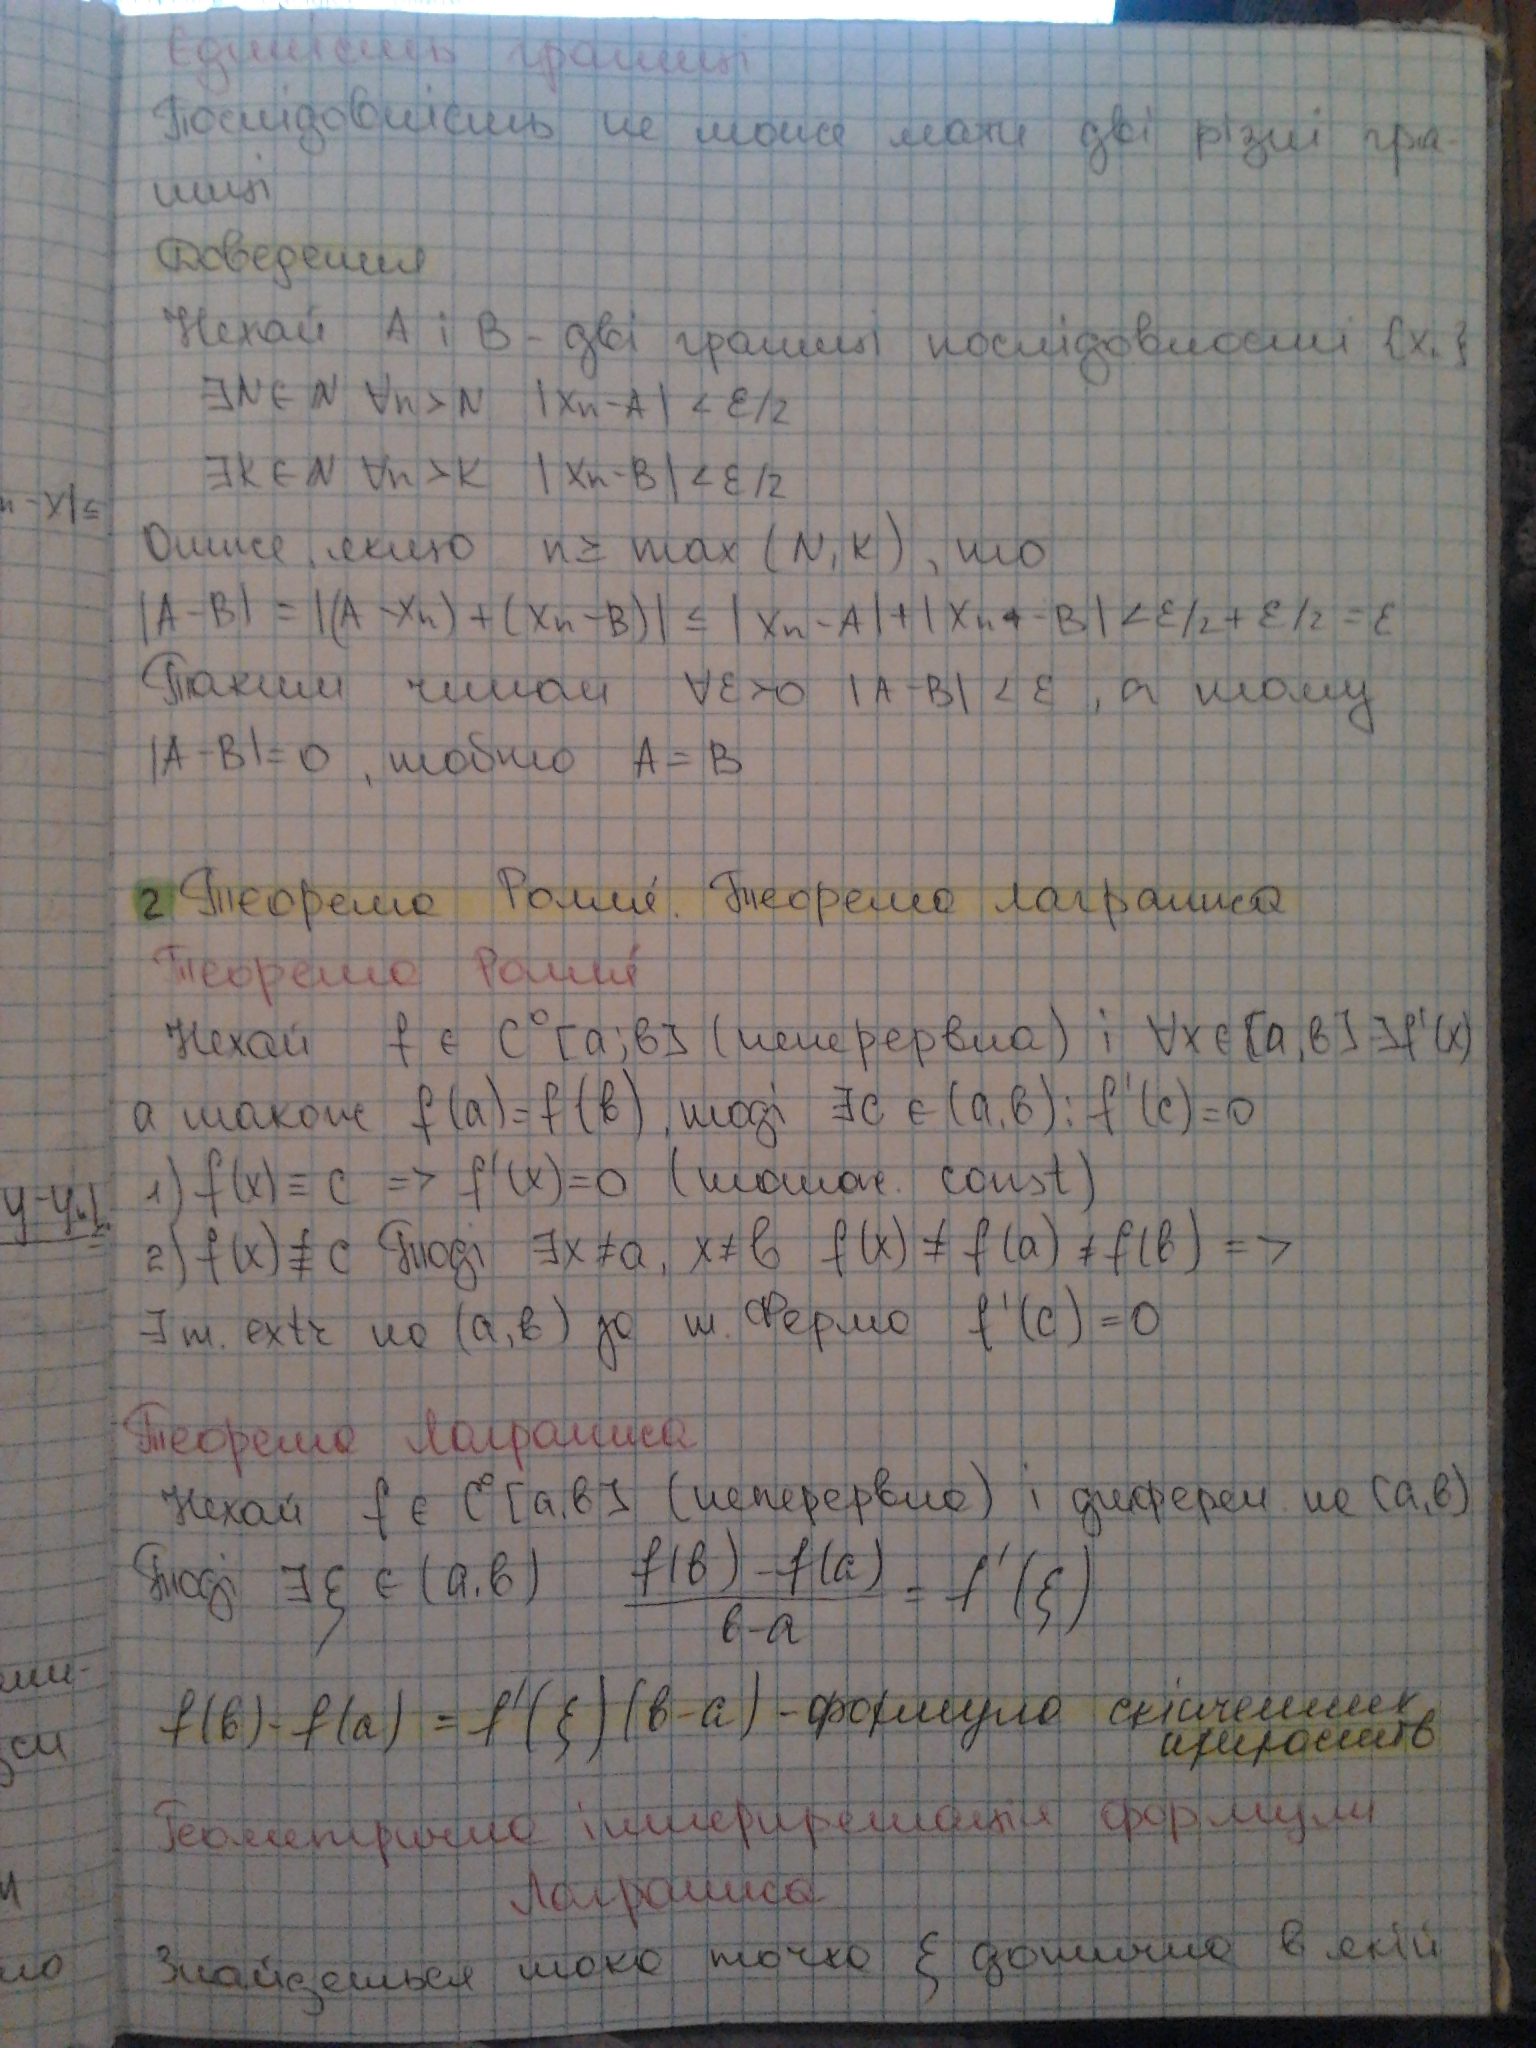 Єдиність границі
Послідовність не може мати дві різні гра-
ниці
Доведення
Нехай A і B - дві границі послідовності {xn}
∃N∈N ∀n>N |xn-A| < ε/2
∃K∈N ∀n>K |xn-B| < ε/2
Отже, якщо n≥ max (N,K), то
|A-B| = |(A-xn)+(xn-B)| ≤ |xn-A|+|xn-B| < ε/2 + ε/2 = ε
Таким чином ∀ε>0 |A-B| < ε, а тому
|A-B|=0, тобто A=B
2 Теорема Ролля. Теорема Лагранжа
Теорема Ролля
Нехай f ∈ C⁰[a;b] (неперервна) і ∀x∈[a,b] ∃f'(x)
а також f(a)=f(b), тоді ∃c∈(a,b): f'(c)=0
1) f(x)≡c => f'(x)=0 (тотож. const)
2) f(x)≢c Тоді ∃x≠a, x≠b f(x)≠f(a)≠f(b) =>
∃ т. extr на (a,b) за т. Ферма f'(c)=0
Теорема Лагранжа
Нехай f ∈ C⁰[a,b] (неперервна) і диферен на (a,b)
Тоді ∃ξ∈(a,b) (f(b)-f(a))/(b-a) = f'(ξ)
f(b)-f(a) = f'(ξ)(b-a) - формула скінченних
приростів
Геометрична інтерпретація формули
Лагранжа
Знайдеться така точка ξ дотична в якій
n-x|≤
y-yn|
ми-
но